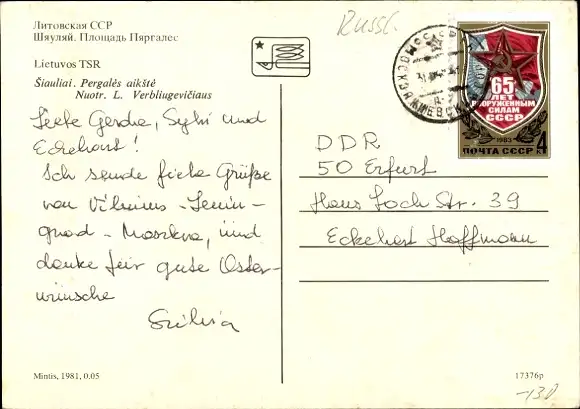 Литовская ССР
Шяуляй. Площадь Пяргалес
Lietuvos TSR
Šiauliai. Pergalės aikštė
Nuotr. L. Verbliugevičiaus
Liebe Gerda, Sylvi und
Eckehart!
Ich sende viele Grüße
von Vilnius - Lenin-
grad - Moskva, und
danke für gute Oster-
wünsche
Silvia
Mintis, 1981, 0.05
Russl.
65
ЛЕТ
ВООРУЖЕННЫМ
СИЛАМ
СССР
1983
ПОЧТА СССР 4 к
DDR
50 Erfurt
Hans Loch Str. 39
Eckehart Hoffmann
17376р
-130